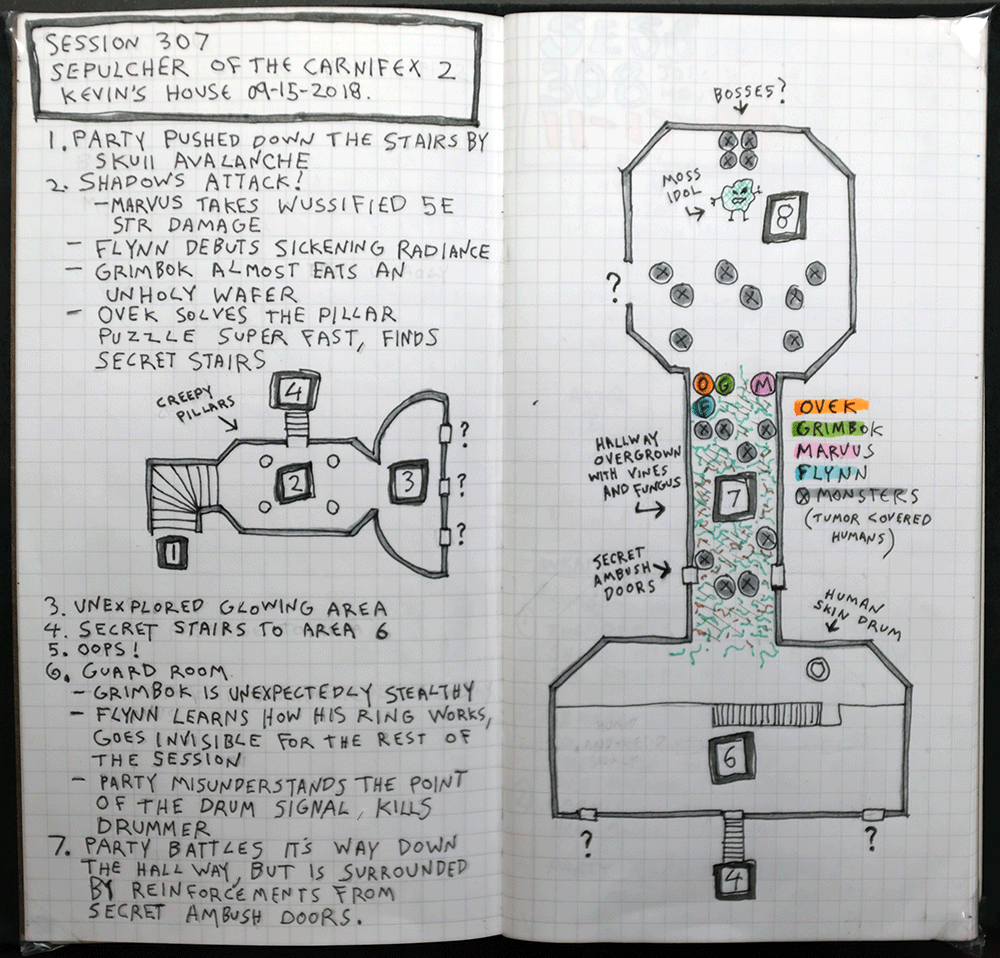 SESSION 307
SEPULCHER OF THE CARNIFEX 2
KEVIN'S HOUSE 09-15-2018.
1. PARTY PUSHED DOWN THE STAIRS BY
SKUll AVALANCHE
2. SHADOWS ATTACK!
- MARVUS TAKES WUSSIFIED 5E
STR DAMAGE
- FLYNN DEBUTS SICKENING RADIANCE
- GRIMBOK ALMOST EATS AN
UNHOLY WAFER
- OVEK SOLVES THE PILLAR
PUZZLE SUPER FAST, FINDS
SECRET STAIRS
CREEPY
PILLARS
4
2
3
1
?
?
?
3. UNEXPLORED GLOWING AREA
4. SECRET STAIRS TO AREA 6
5. OOPS!
6. GUARD ROOM
- GRIMBOK IS UNEXPECTEDLY STEALTHY
- FLYNN LEARNS HOW HIS RING WORKS,
GOES INVISIBLE FOR THE REST OF
THE SESSION
- PARTY MISUNDERSTANDS THE POINT
OF THE DRUM SIGNAL, KILLS
DRUMMER
7. PARTY BATTLES IT'S WAY DOWN
THE HALLWAY, BUT IS SURROUNDED
BY REINFORCEMENTS FROM
SECRET AMBUSH DOORS.
BOSSES?
MOSS
IDOL
8
?
O G M
F
OVEK
GRIMBOK
MARVUS
FLYNN
X MONSTERS
(TUMOR COVERED
HUMANS)
HALLWAY
OVERGROWN
WITH VINES
AND FUNGUS
7
SECRET
AMBUSH
DOORS
HUMAN
SKIN DRUM
6
?
?
4